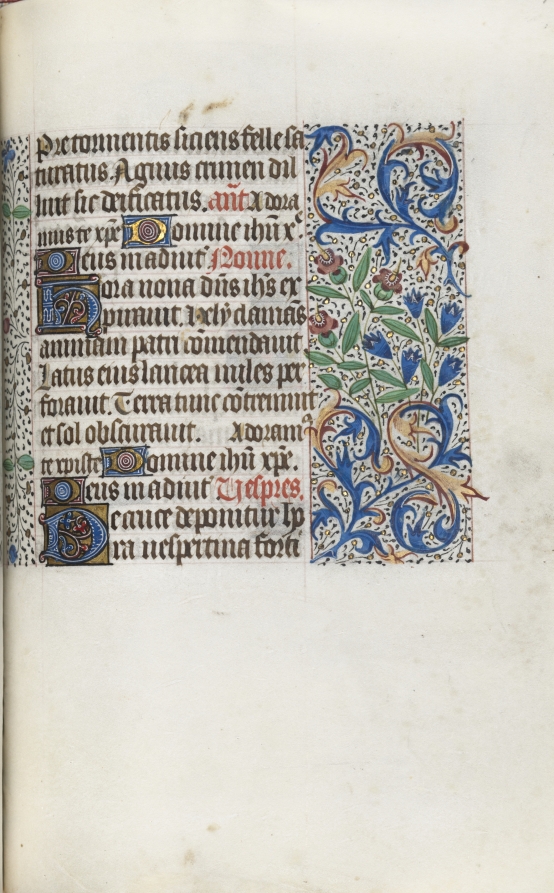 Pre tormentis siciens felle sa
turatus. Agnus crimen dil
luit sic deificatus. añt Adora
mus te xp̄e Domine ihū x̄
Deus in adiut Nonne.
Hora nona dn̄s ihs̄ ex
pirauit hely clamās
animam patri cōmendauit
Latus eius lancea miles per
forauit. Terra tunc cōtremuit
et sol obscurauit. Adoramꝰ
te xpiste Domine ihū xp̄e.
Deus in adiut Vespres.
De cruce deponitur ho
ra uespertina forti